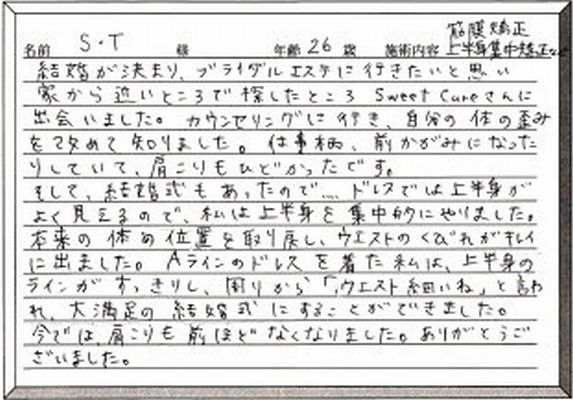 筋膜矯正
名前 S・T 様 年齢 26 歳 施術内容 上半身集中矯正など
結婚が決まり、ブライダルエステに行きたいと思い
家から近いところで探したところ Sweet Cureさんに
出会いました。カウンセリングに行き、自分の体の歪み
を改めて知りました。仕事柄、前かがみになった
りしていて、肩こりもひどかったです。
そして、結婚式もあったので…、ドレスでは上半身が
よく見えるので、私は上半身を集中的にやりました。
本来の体の位置を取り戻し、ウエストのくびれがキレイ
に出ました。Aラインのドレスを着た私は、上半身の
ラインがすっきりし、周りから「ウエスト細いね」と言わ
れ、大満足の結婚式にすることができました。
今では、肩こりも前ほどなくなりました。ありがとうご
ざいました。